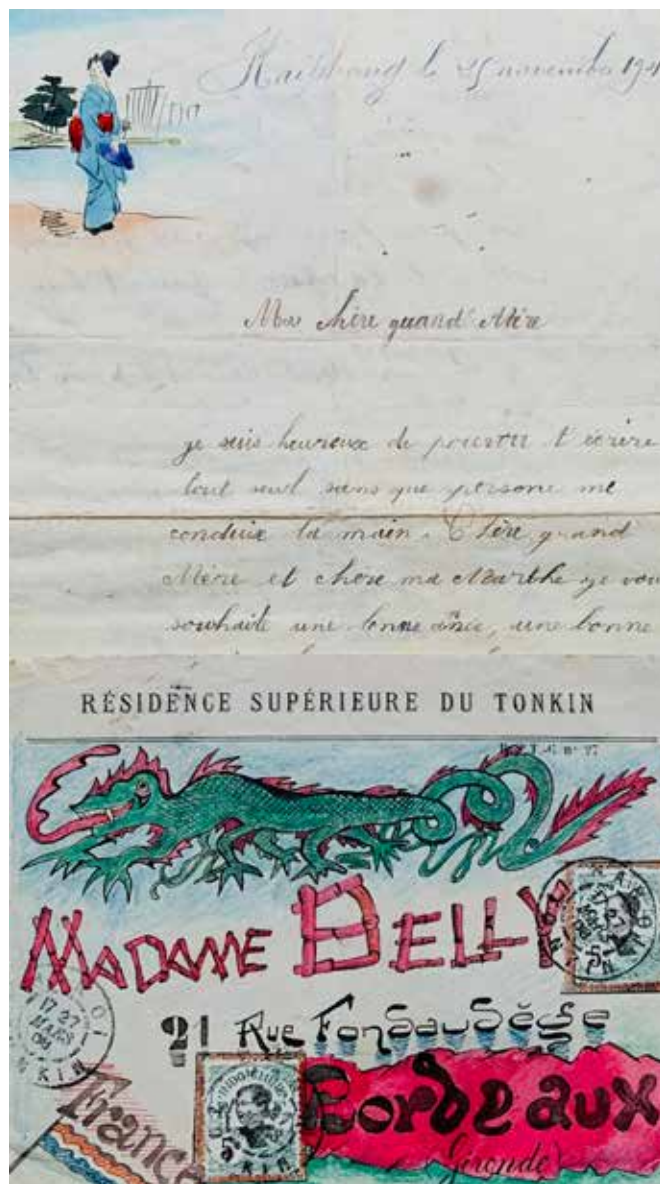 Haiphong le 25 novembre 191
Ma chère grand Mère
je suis heureux de pouvoir t'écrire
tout seul sans que persone me
conduise la main. Chère grand
Mère et chère ma Marthe je vou
souhaite une bonne anée, une bonne
RÉSIDENCE SUPÉRIEURE DU TONKIN
MADAME BELLY
21 Rue Fondaudège
Bordeaux
France
Gironde
17 27
MARS
TONKIN